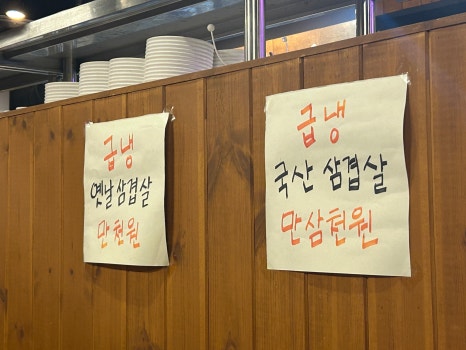 급냉
옛날삼겹살
만천원
급냉
국산 삼겹살
만삼천원